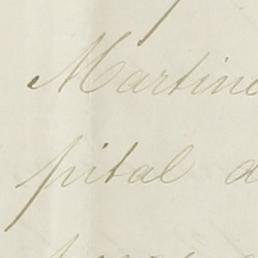 Martine
pital a